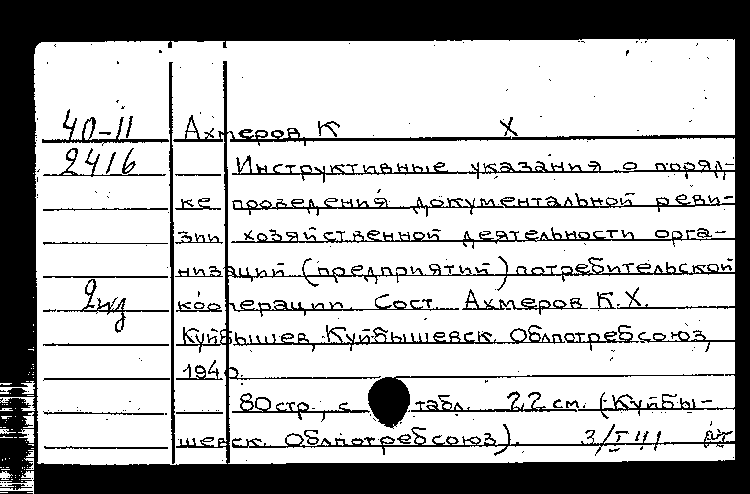 40-11 Ахмеров, К Х
2416 Инструктивные указания о поряд-
ке проведения документальной реви-
зии хозяйственной деятельности орга-
низаций (предприятий) потребительской
2изд кооперации. Сост. Ахмеров К.Х.
Куйбышев, Куйбышевск. Облпотребсоюз,
1940.
80 стр., с табл. 22 см. (Куйбы-
шевск. Облпотребсоюз). 3/I 41